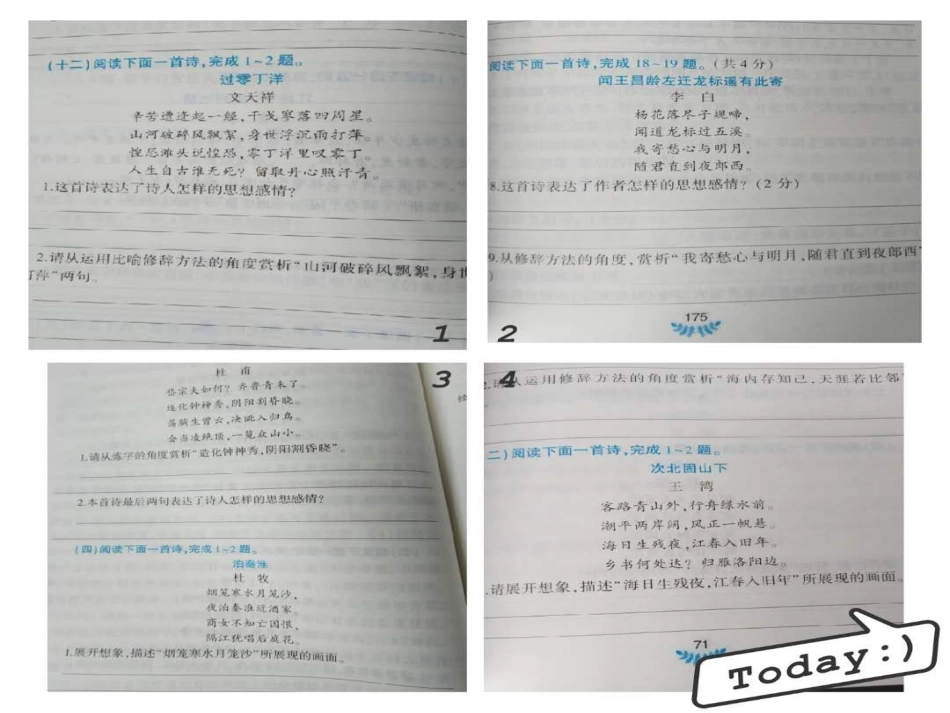 (十二)阅读下面一首诗,完成1~2题。
过零丁洋
文天祥
辛苦遭逢起一经,干戈寥落四周星。
山河破碎风飘絮,身世浮沉雨打萍。
惶恐滩头说惶恐,零丁洋里叹零丁。
人生自古谁无死?留取丹心照汗青。
1.这首诗表达了诗人怎样的思想感情?
2.请从运用比喻修辞方法的角度赏析“山河破碎风飘絮,身世
打萍”两句。
1
阅读下面一首诗,完成18~19题。(共4分)
闻王昌龄左迁龙标遥有此寄
李白
杨花落尽子规啼,
闻道龙标过五溪。
我寄愁心与明月,
随君直到夜郎西。
8.这首诗表达了作者怎样的思想感情?(2分)
9.从修辞方法的角度,赏析“我寄愁心与明月,随君直到夜郎西”
)
175
2
杜甫
岱宗夫如何?齐鲁青未了。
造化钟神秀,阴阳割昏晓。
荡胸生曾云,决眦入归鸟。
会当凌绝顶,一览众山小。
1.请从炼字的角度赏析“造化钟神秀,阴阳割昏晓”。
2.本首诗最后两句表达了诗人怎样的思想感情?
(四)阅读下面一首诗,完成1~2题。
泊秦淮
杜牧
烟笼寒水月笼沙,
夜泊秦淮近酒家。
商女不知亡国恨,
隔江犹唱后庭花。
1.展开想象,描述“烟笼寒水月笼沙”所展现的画面。
3
4
从运用修辞方法的角度赏析“海内存知己,天涯若比邻”
二)阅读下面一首诗,完成1~2题。
次北固山下
王湾
客路青山外,行舟绿水前。
潮平两岸阔,风正一帆悬。
海日生残夜,江春入旧年。
乡书何处达?归雁洛阳边。
.请展开想象,描述“海日生残夜,江春入旧年”所展现的画面。
71
Today:)